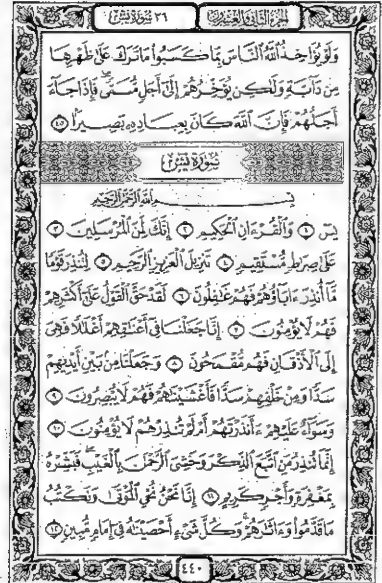 الجزء الثاني والعشرون
٣٦ سورة يس
وَلَوْ يُؤَاخِذُ اللَّهُ النَّاسَ بِمَا كَسَبُوا مَا تَرَكَ عَلَىٰ ظَهْرِهَا
مِن دَابَّةٍ وَلَٰكِن يُؤَخِّرُهُمْ إِلَىٰ أَجَلٍ مُّسَمًّى فَإِذَا جَاءَ
أَجَلُهُمْ فَإِنَّ اللَّهَ كَانَ بِعِبَادِهِ بَصِيرًا ٤٥
سورة يس
بسم الله الرحمن الرحيم
يسٓ ١ وَالْقُرْءَانِ الْحَكِيمِ ٢ إِنَّكَ لَمِنَ الْمُرْسَلِينَ ٣
عَلَىٰ صِرَاطٍ مُّسْتَقِيمٍ ٤ تَنزِيلَ الْعَزِيزِ الرَّحِيمِ ٥ لِتُنذِرَ قَوْمًا
مَّا أُنذِرَ ءَابَاؤُهُمْ فَهُمْ غَافِلُونَ ٦ لَقَدْ حَقَّ الْقَوْلُ عَلَىٰ أَكْثَرِهِمْ
فَهُمْ لَا يُؤْمِنُونَ ٧ إِنَّا جَعَلْنَا فِي أَعْنَاقِهِمْ أَغْلَالًا فَهِيَ
إِلَى الْأَذْقَانِ فَهُم مُّقْمَحُونَ ٨ وَجَعَلْنَا مِن بَيْنِ أَيْدِيهِمْ
سَدًّا وَمِنْ خَلْفِهِمْ سَدًّا فَأَغْشَيْنَاهُمْ فَهُمْ لَا يُبْصِرُونَ ٩
وَسَوَاءٌ عَلَيْهِمْ ءَأَنذَرْتَهُمْ أَمْ لَمْ تُنذِرْهُمْ لَا يُؤْمِنُونَ ١٠
إِنَّمَا تُنذِرُ مَنِ اتَّبَعَ الذِّكْرَ وَخَشِيَ الرَّحْمَٰنَ بِالْغَيْبِ فَبَشِّرْهُ
بِمَغْفِرَةٍ وَأَجْرٍ كَرِيمٍ ١١ إِنَّا نَحْنُ نُحْيِ الْمَوْتَىٰ وَنَكْتُبُ
مَا قَدَّمُوا وَءَاثَارَهُمْ وَكُلَّ شَيْءٍ أَحْصَيْنَاهُ فِي إِمَامٍ مُّبِينٍ ١٢
٤٤٠